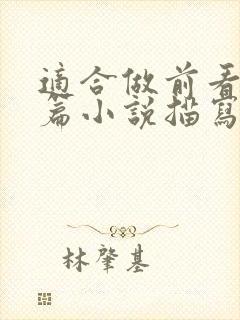 適合做前看
篇小說描寫
林肇基